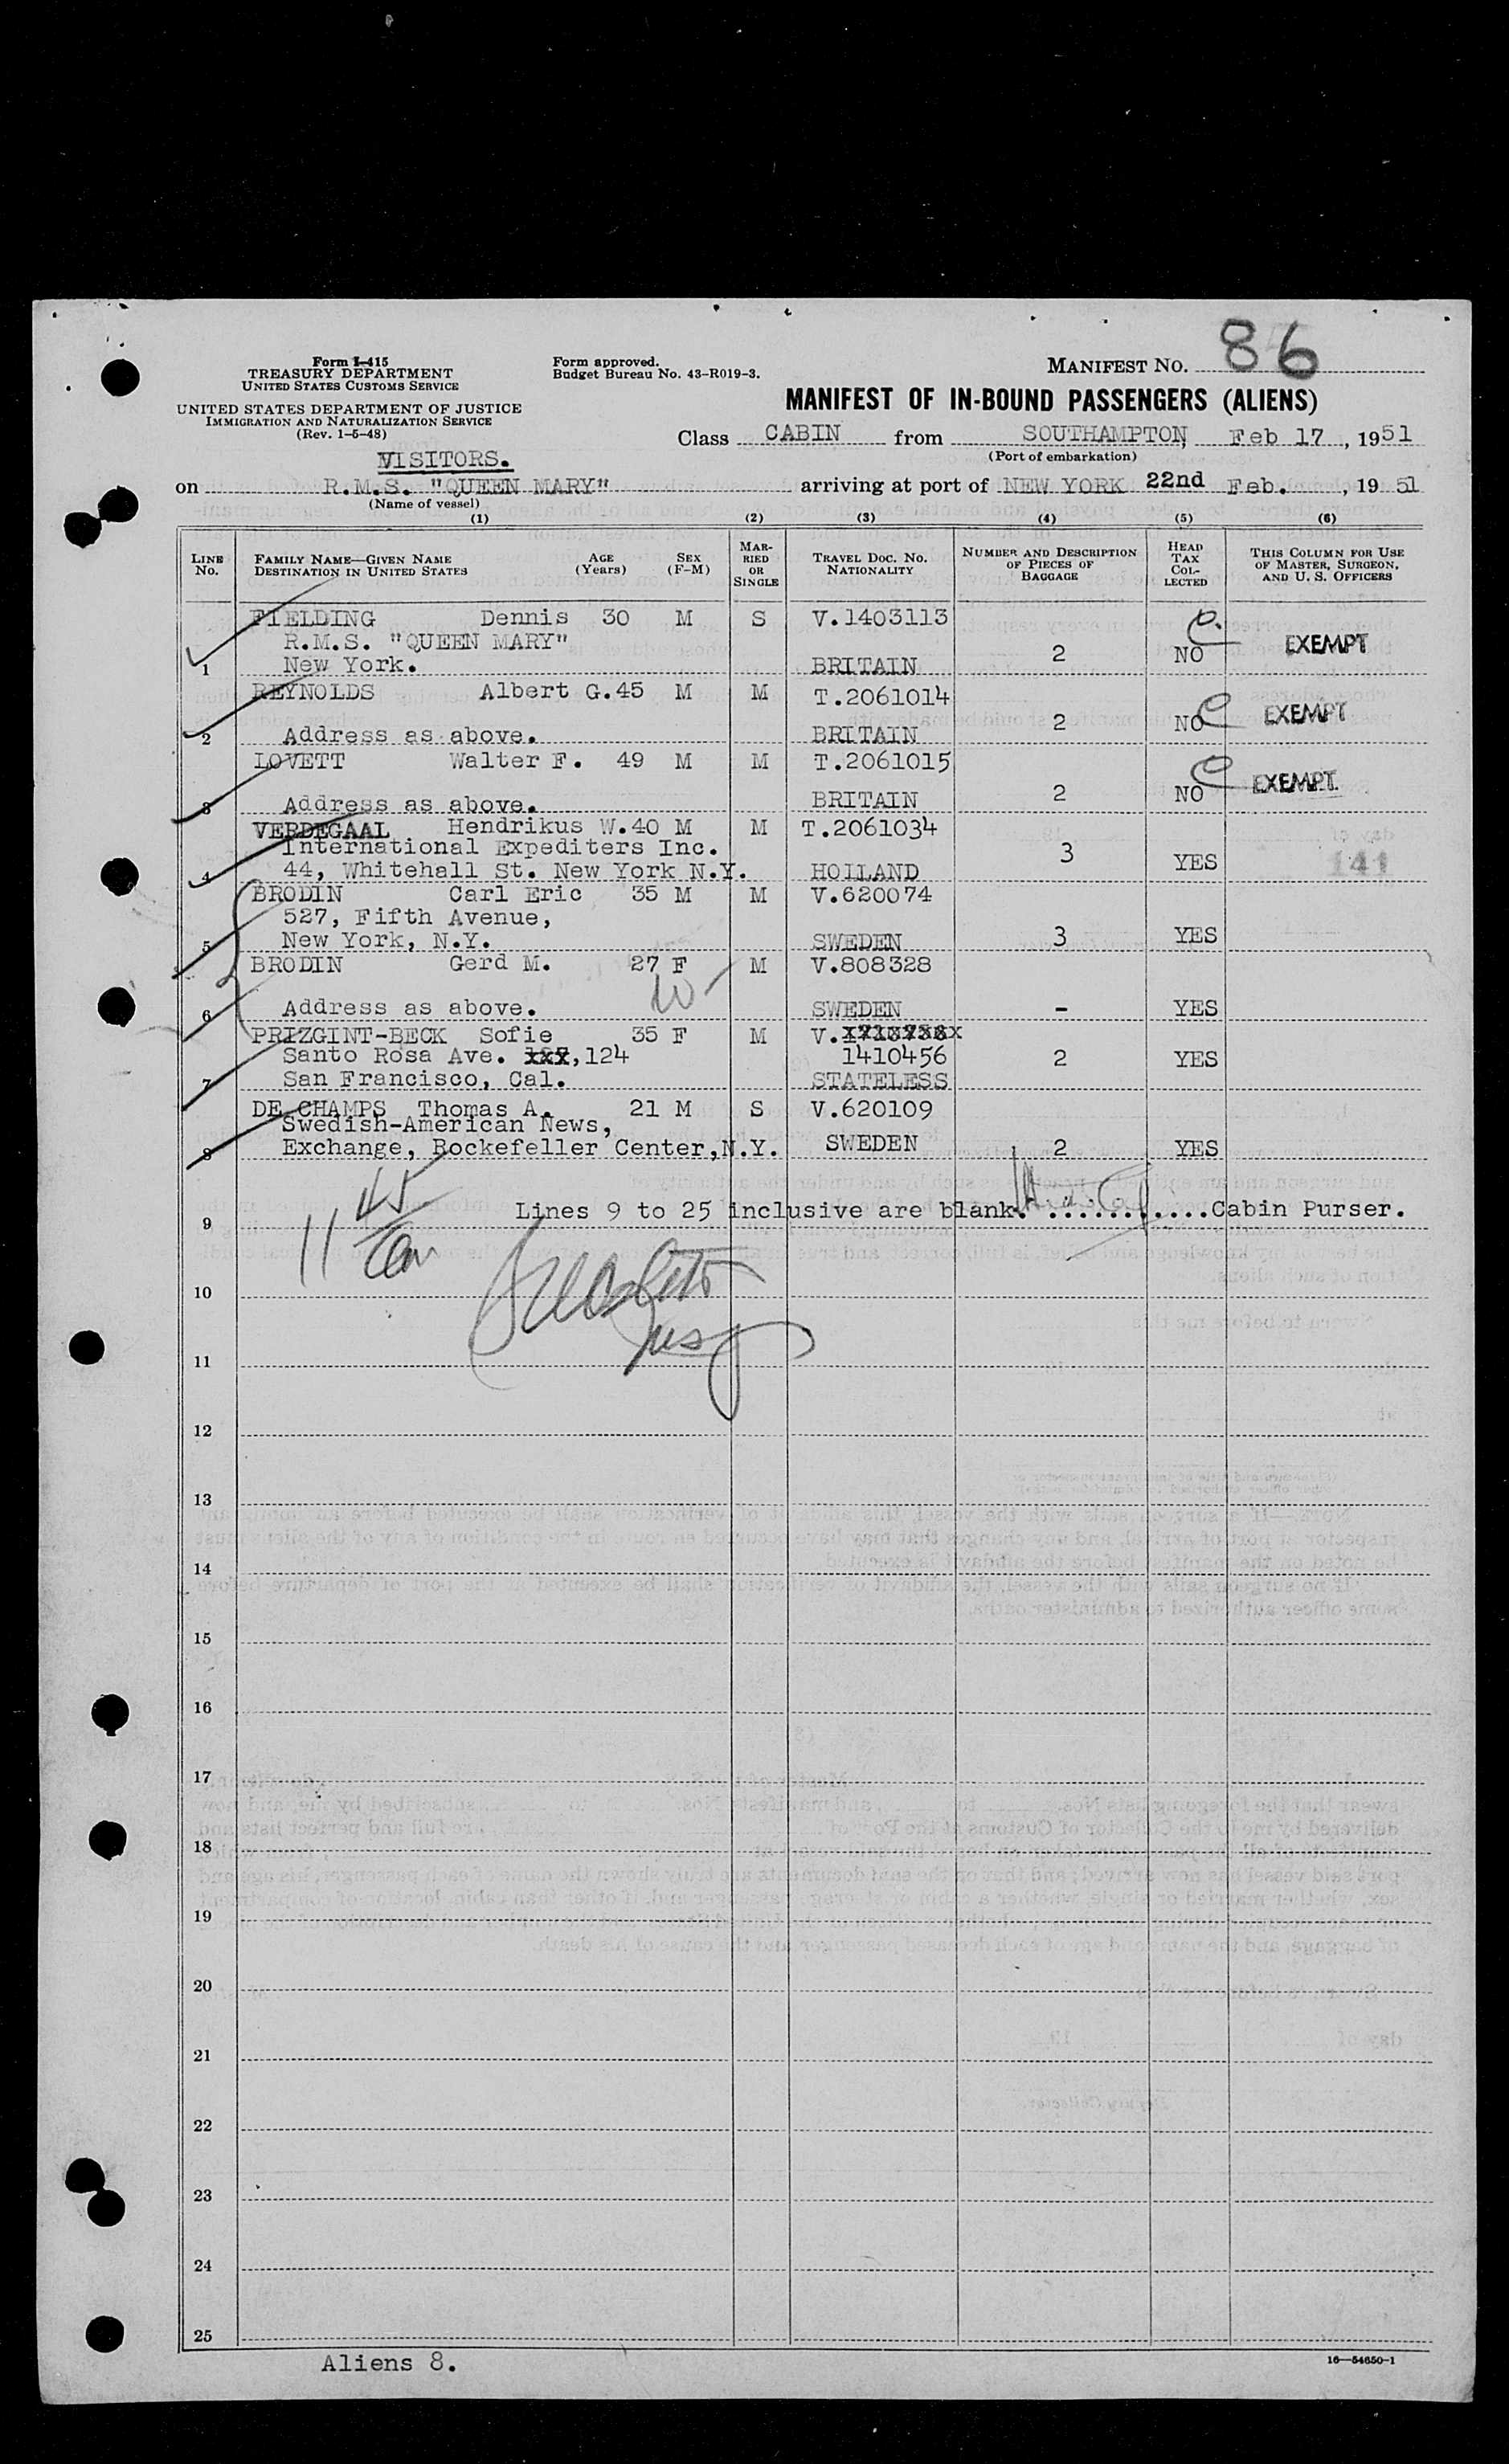 Form I-415
TREASURY DEPARTMENT
UNITED STATES CUSTOMS SERVICE
UNITED STATES DEPARTMENT OF JUSTICE
IMMIGRATION AND NATURALIZATION SERVICE
(Rev. 1-5-48)
Form approved.
Budget Bureau No. 43-R019-3.
MANIFEST NO. 86
MANIFEST OF IN-BOUND PASSENGERS (ALIENS)
Class CABIN from SOUTHAMPTON, Feb 17, 1951
(Port of embarkation)
VISITORS.
on R.M.S. "QUEEN MARY" arriving at port of NEW YORK 22nd Feb., 1951
(Name of vessel)
(1) (2) (3) (4) (5) (6)
LINE No. FAMILY NAME—GIVEN NAME DESTINATION IN UNITED STATES AGE (Years) SEX (F-M) MARRIED OR SINGLE TRAVEL DOC. NO. NATIONALITY NUMBER AND DESCRIPTION OF PIECES OF BAGGAGE HEAD TAX COLLECTED THIS COLUMN FOR USE OF MASTER, SURGEON, AND U. S. OFFICERS
FIELDING Dennis 30 M S V.1403113
R.M.S. "QUEEN MARY" 2 NO EXEMPT
1 New York. BRITAIN
REYNOLDS Albert G. 45 M M T.2061014
2 NO EXEMPT
2 Address as above. BRITAIN
LOVETT Walter F. 49 M M T.2061015
2 NO EXEMPT
3 Address as above. BRITAIN
VERDEGAAL Hendrikus W. 40 M M T.2061034
International Expediters Inc. 3 YES 141
4 44, Whitehall St. New York N.Y. HOLLAND
BRODIN Carl Eric 35 M M V.620074
527, Fifth Avenue,
5 New York, N.Y. SWEDEN 3 YES
BRODIN Gerd M. 27 F M V.808328
6 Address as above. SWEDEN - YES
PRIZGINT-BECK Sofie 35 F M V.
Santo Rosa Ave. xxx, 124 1410456 2 YES
7 San Francisco, Cal. STATELESS
DE CHAMPS Thomas A. 21 M S V.620109
Swedish-American News,
8 Exchange, Rockefeller Center, N.Y. SWEDEN 2 YES
11 45
9 Lines 9 to 25 inclusive are blank. ............Cabin Purser.
10
11
12
13
14
15
16
17
18
19
20
21
22
23
24
25
Aliens 8.
16—54650-1